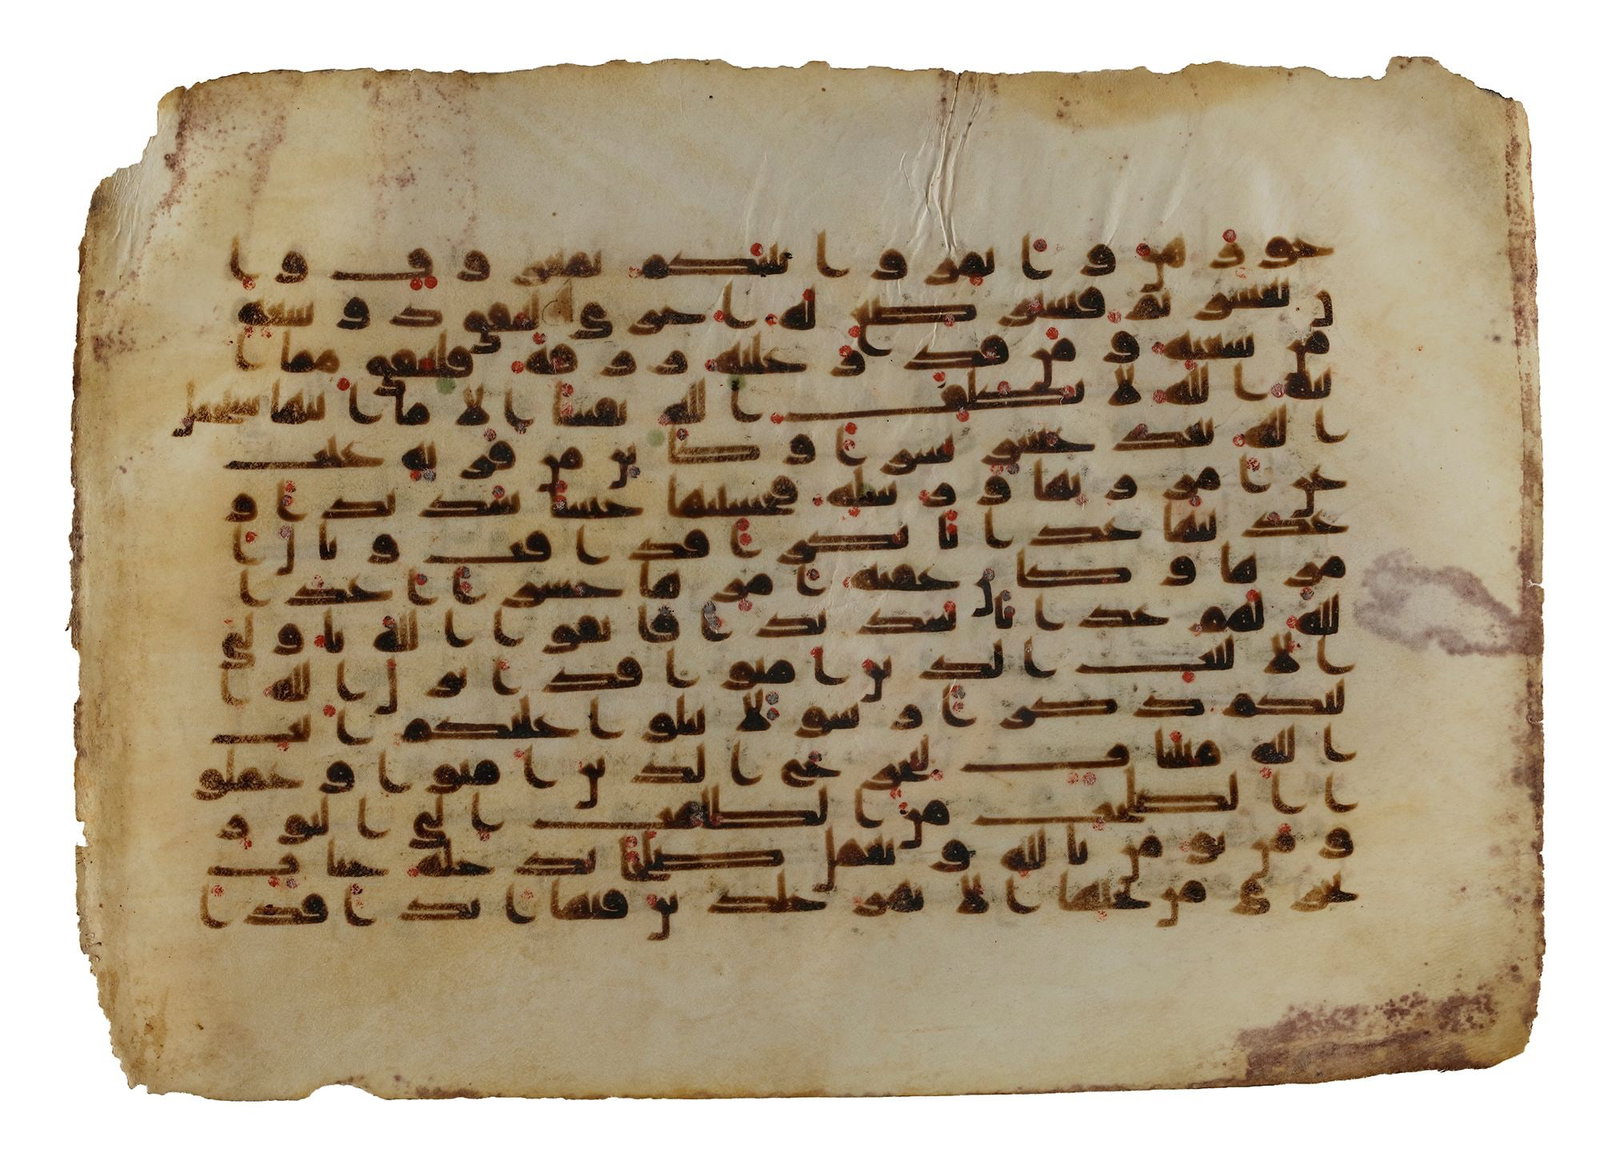 جورهن وا تمروا بينكم بمعروف وا
ن تعسرتم فسترضع له اخرى لينفق ذو سعة
من سعته ومن قدر عليه رزقه فلينفق مما ا
تيه الله لا يكلف الله نفسا الا ما اتيها سيجعل
الله بعد عسر يسرا وكاين من قرية عتت
عن امر ربها ورسله فحسبنها حسابا شديدا و
عذبنها عذابا نكرا فذاقت وبال ا
مرها وكان عقبة امرها خسرا اعد ا
لله لهم عذابا شديدا فاتقوا الله ياولي
الالبب الذين امنوا قد انزل الله ا
ليكم ذكرا رسولا يتلوا عليكم ايت
الله مبينت ليخرج الذين امنوا وعملو
ا الصلحت من الظلمت الى النور
ومن يومن بالله ويعمل صلحا يدخله جنت
تجري من تحتها الانهر خلدين فيها ابدا قد ا